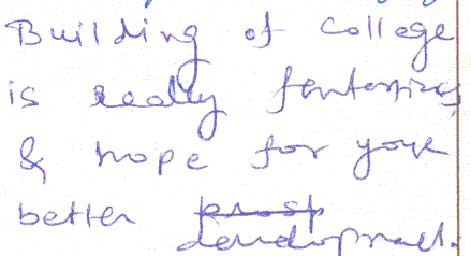 Building of college
is really fantastics
& hope for your
better prosp
development.